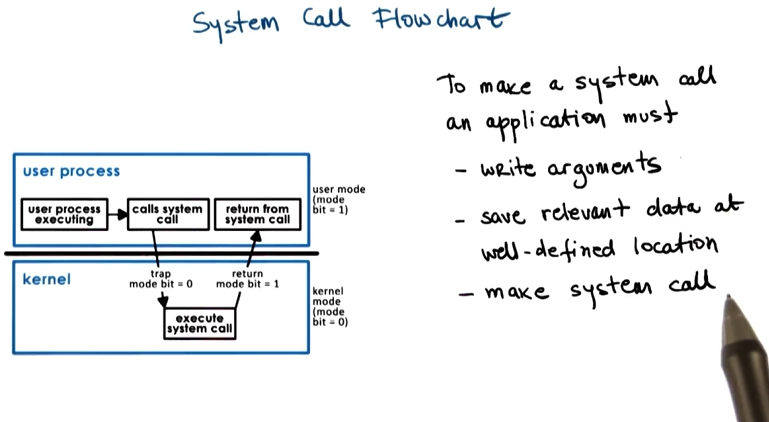 System Call Flowchart
user process
user process
executing
calls system
call
return from
system call
user mode
(mode
bit = 1)
kernel
trap
mode bit = 0
return
mode bit = 1
execute
system call
kernel
mode
(mode
bit = 0)
To make a system call
an application must
- write arguments
- save relevant data at
well-defined location
- make system call